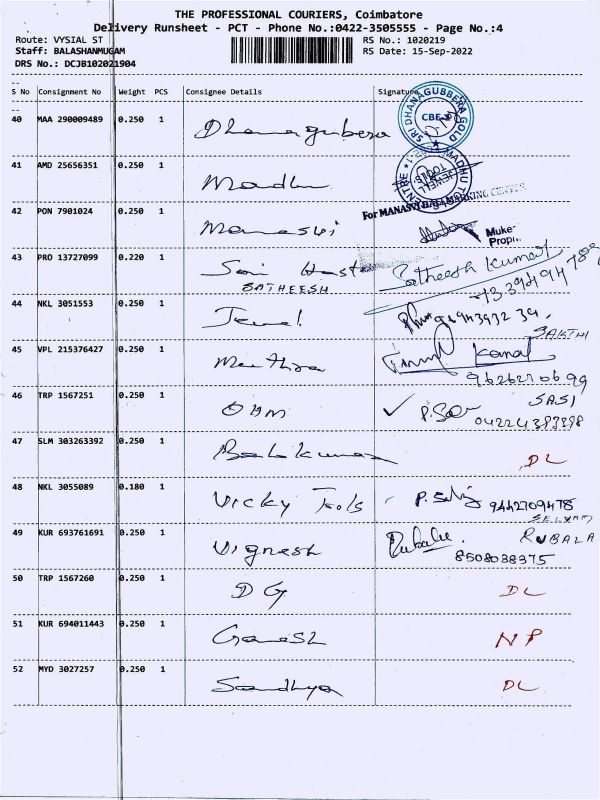 THE PROFESSIONAL COURIERS, Coimbatore
Delivery Runsheet - PCT - Phone No.:0422-3505555 - Page No.:4
Route: VYSIAL ST RS No.: 1020219
Staff: BALASHANMUGAM RS Date: 15-Sep-2022
DRS No.: DCJB102021904
S No Consignment No Weight PCS Consignee Details Signature
40 MAA 290009489 0.250 1 Dhanagubera SRI DHANAGUBBERA GOLD CBE
41 AMD 25656351 0.250 1 Madhu MADHU
42 PON 7901024 0.250 1 Manasvi For MANASVI HALLMARKING CENTER
Muke
Propri
43 PRO 13727099 0.220 1 Satheesh Kumar
SATHEESH
44 NKL 3051553 0.250 1 Jewel
SAKTHI
45 VPL 215376427 0.250 1 Kamal
9626270699
46 TRP 1567251 0.250 1 OHM SASI
47 SLM 303263392 0.250 1 Balakumar DL
48 NKL 3055089 0.180 1 Vicky Tools 9442709478
SELVAM
49 KUR 693761691 0.250 1 Vignesh RUBALA
8508038375
50 TRP 1567260 0.250 1 DG DL
51 KUR 694011443 0.250 1 Ganesh NP
52 MYD 3027257 0.250 1 Sandhya DL